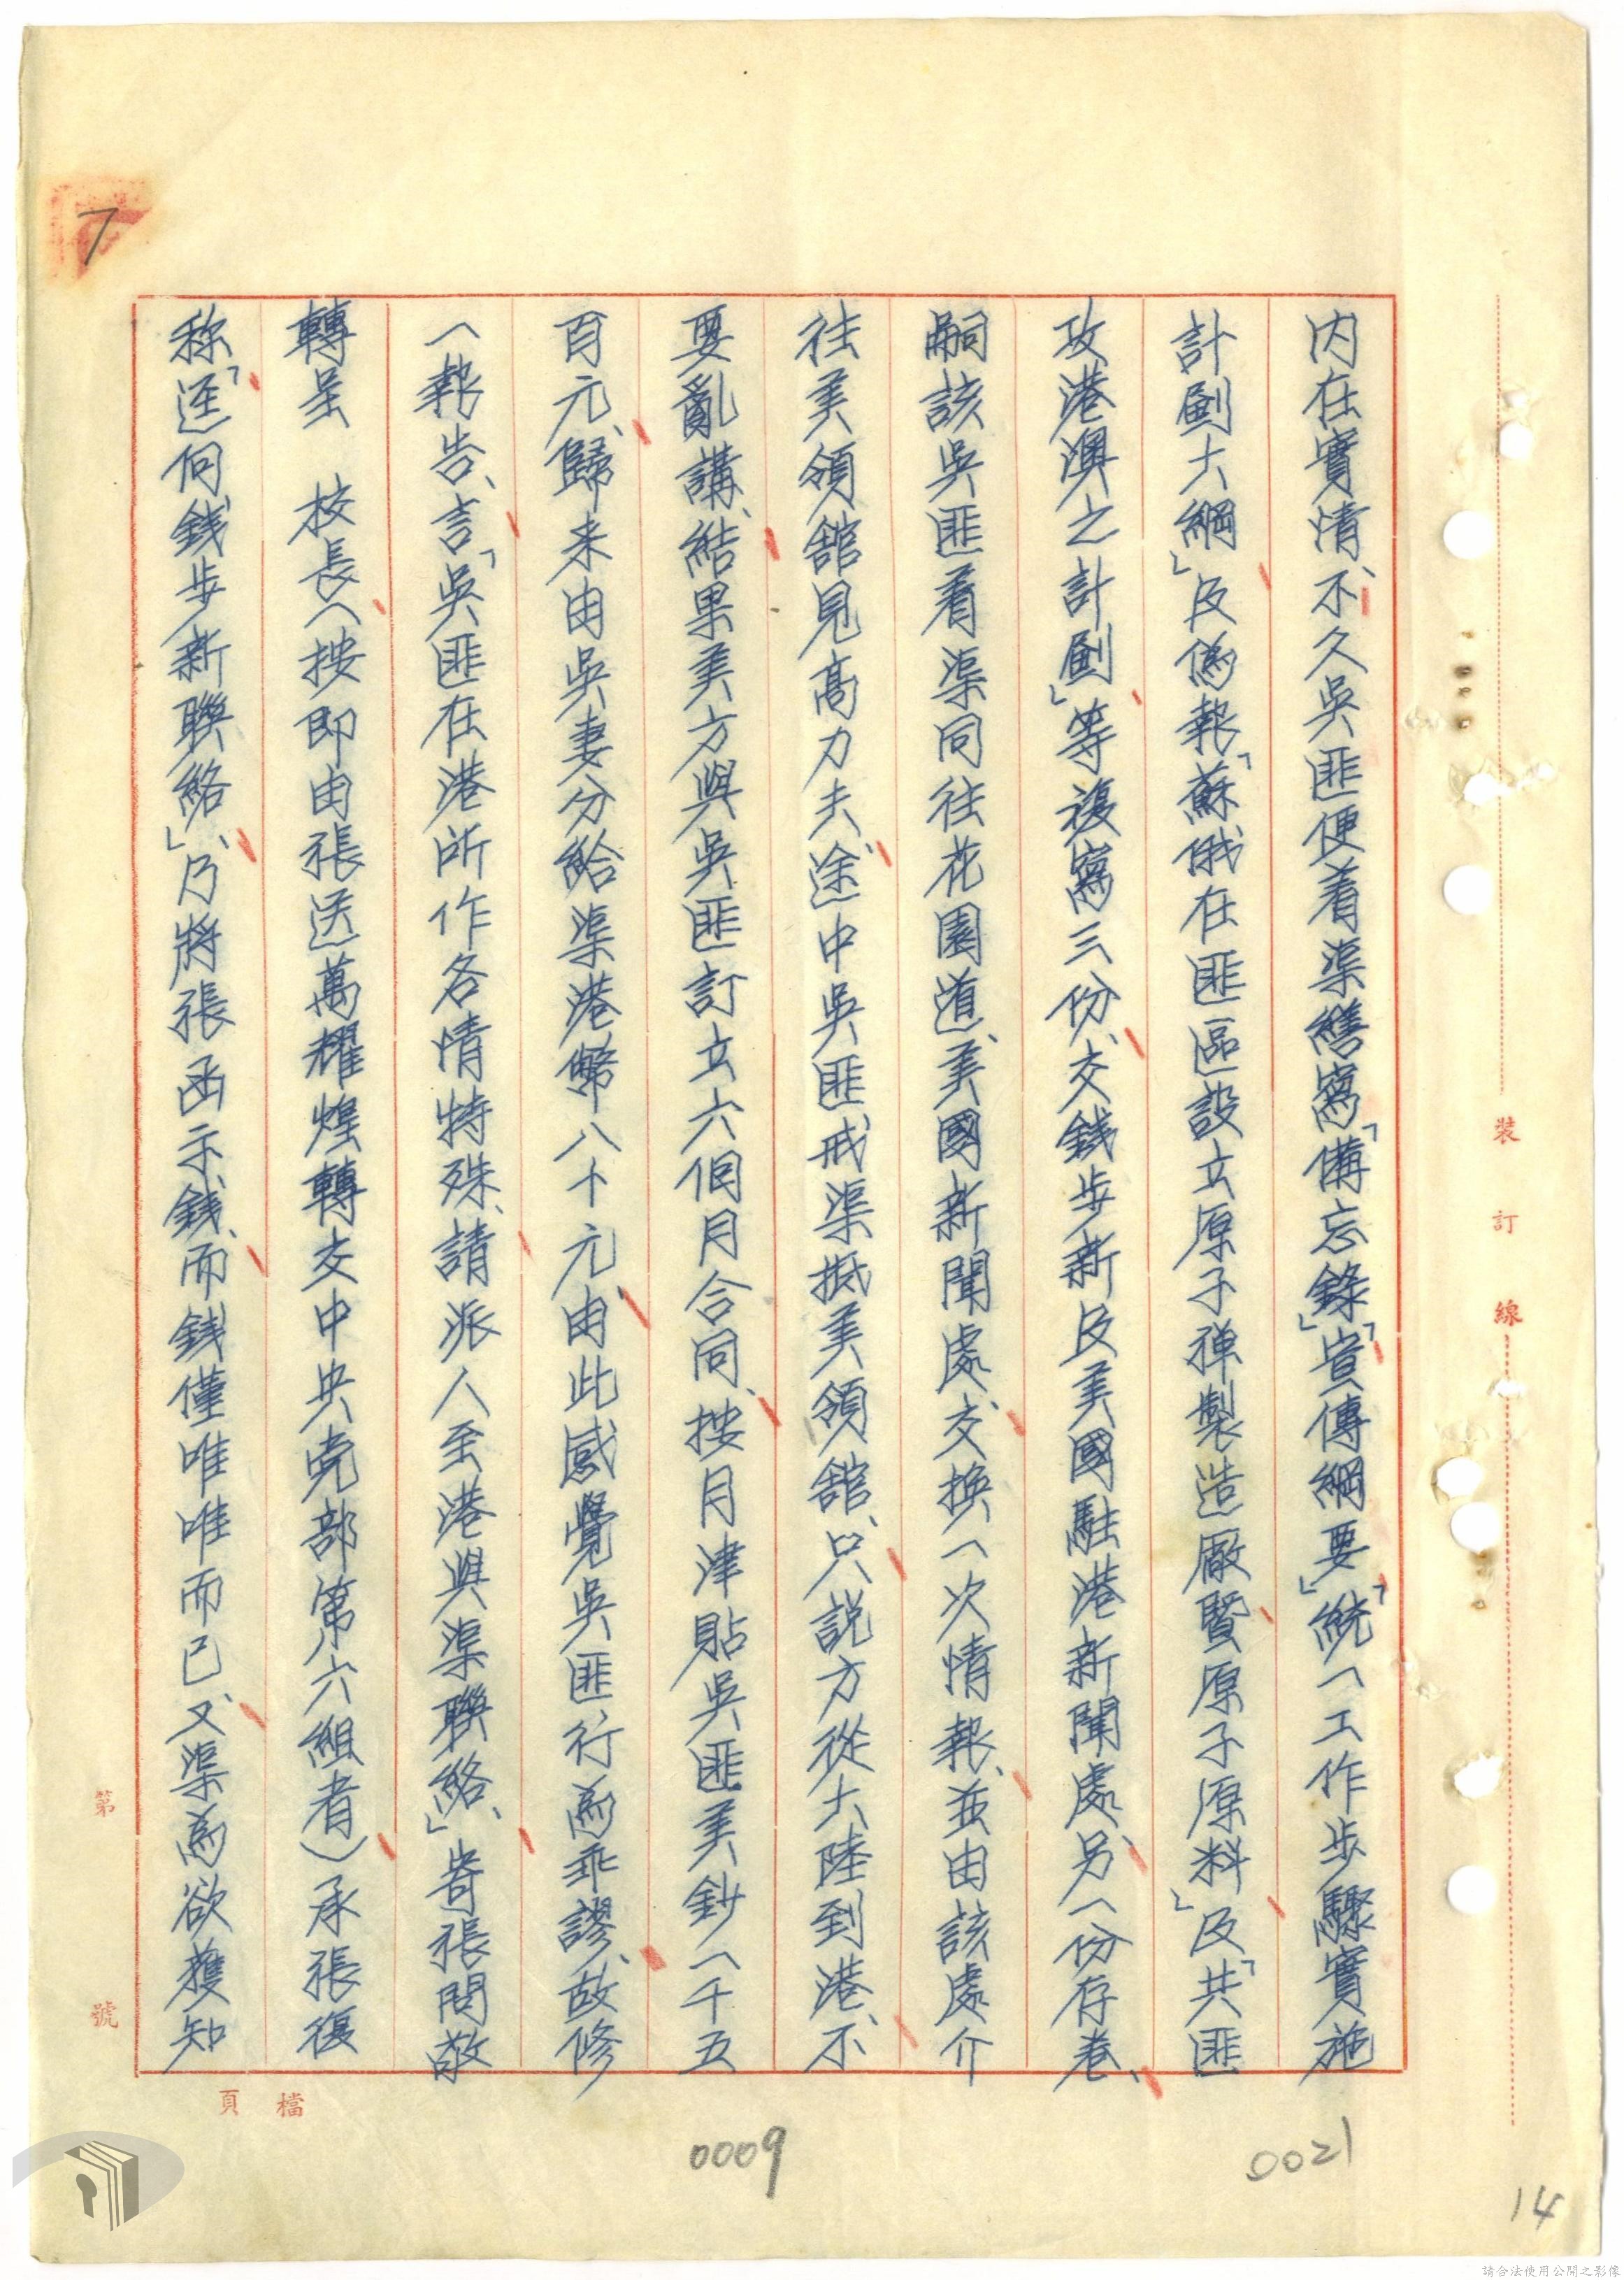 內在實情、不久吳匪便着渠繕寫「備忘錄」「宣傳綱要」「統一工作步驟實施
計劃大綱」及偽報「蘇俄在匪區設立原子彈製造廠暨原子原料」及「共匪
攻港澳之計劃」等複寫三份、交錢步新及美國駐港新聞處、另一份存卷、
嗣該吳匪着渠同往花園道、美國新聞處、交換一次情報、並由該處介
往美領舘見高力夫、途中吳匪戒渠抵美領舘、只説方從大陸到港、不
要亂講、結果美方與吳匪訂立六個月合同、按月津貼吳匪美鈔一千五
百元、歸来由吳妻分給渠港幣八十元、由此感覺吳匪行為乖謬、故修
一報告、言「吳匪在港所作各情特殊、請派人至港與渠聯絡」、寄張問敬
轉呈　校長（按即由張送萬耀煌轉交中央党部第六組者）承張復
称「逕向錢步新聯絡」、乃將張函示錢、而錢僅唯唯而已、又渠為欲獲知
裝
訂
線
第
號
檔
頁
7
0009
0021
14
請合法使用公開之影像